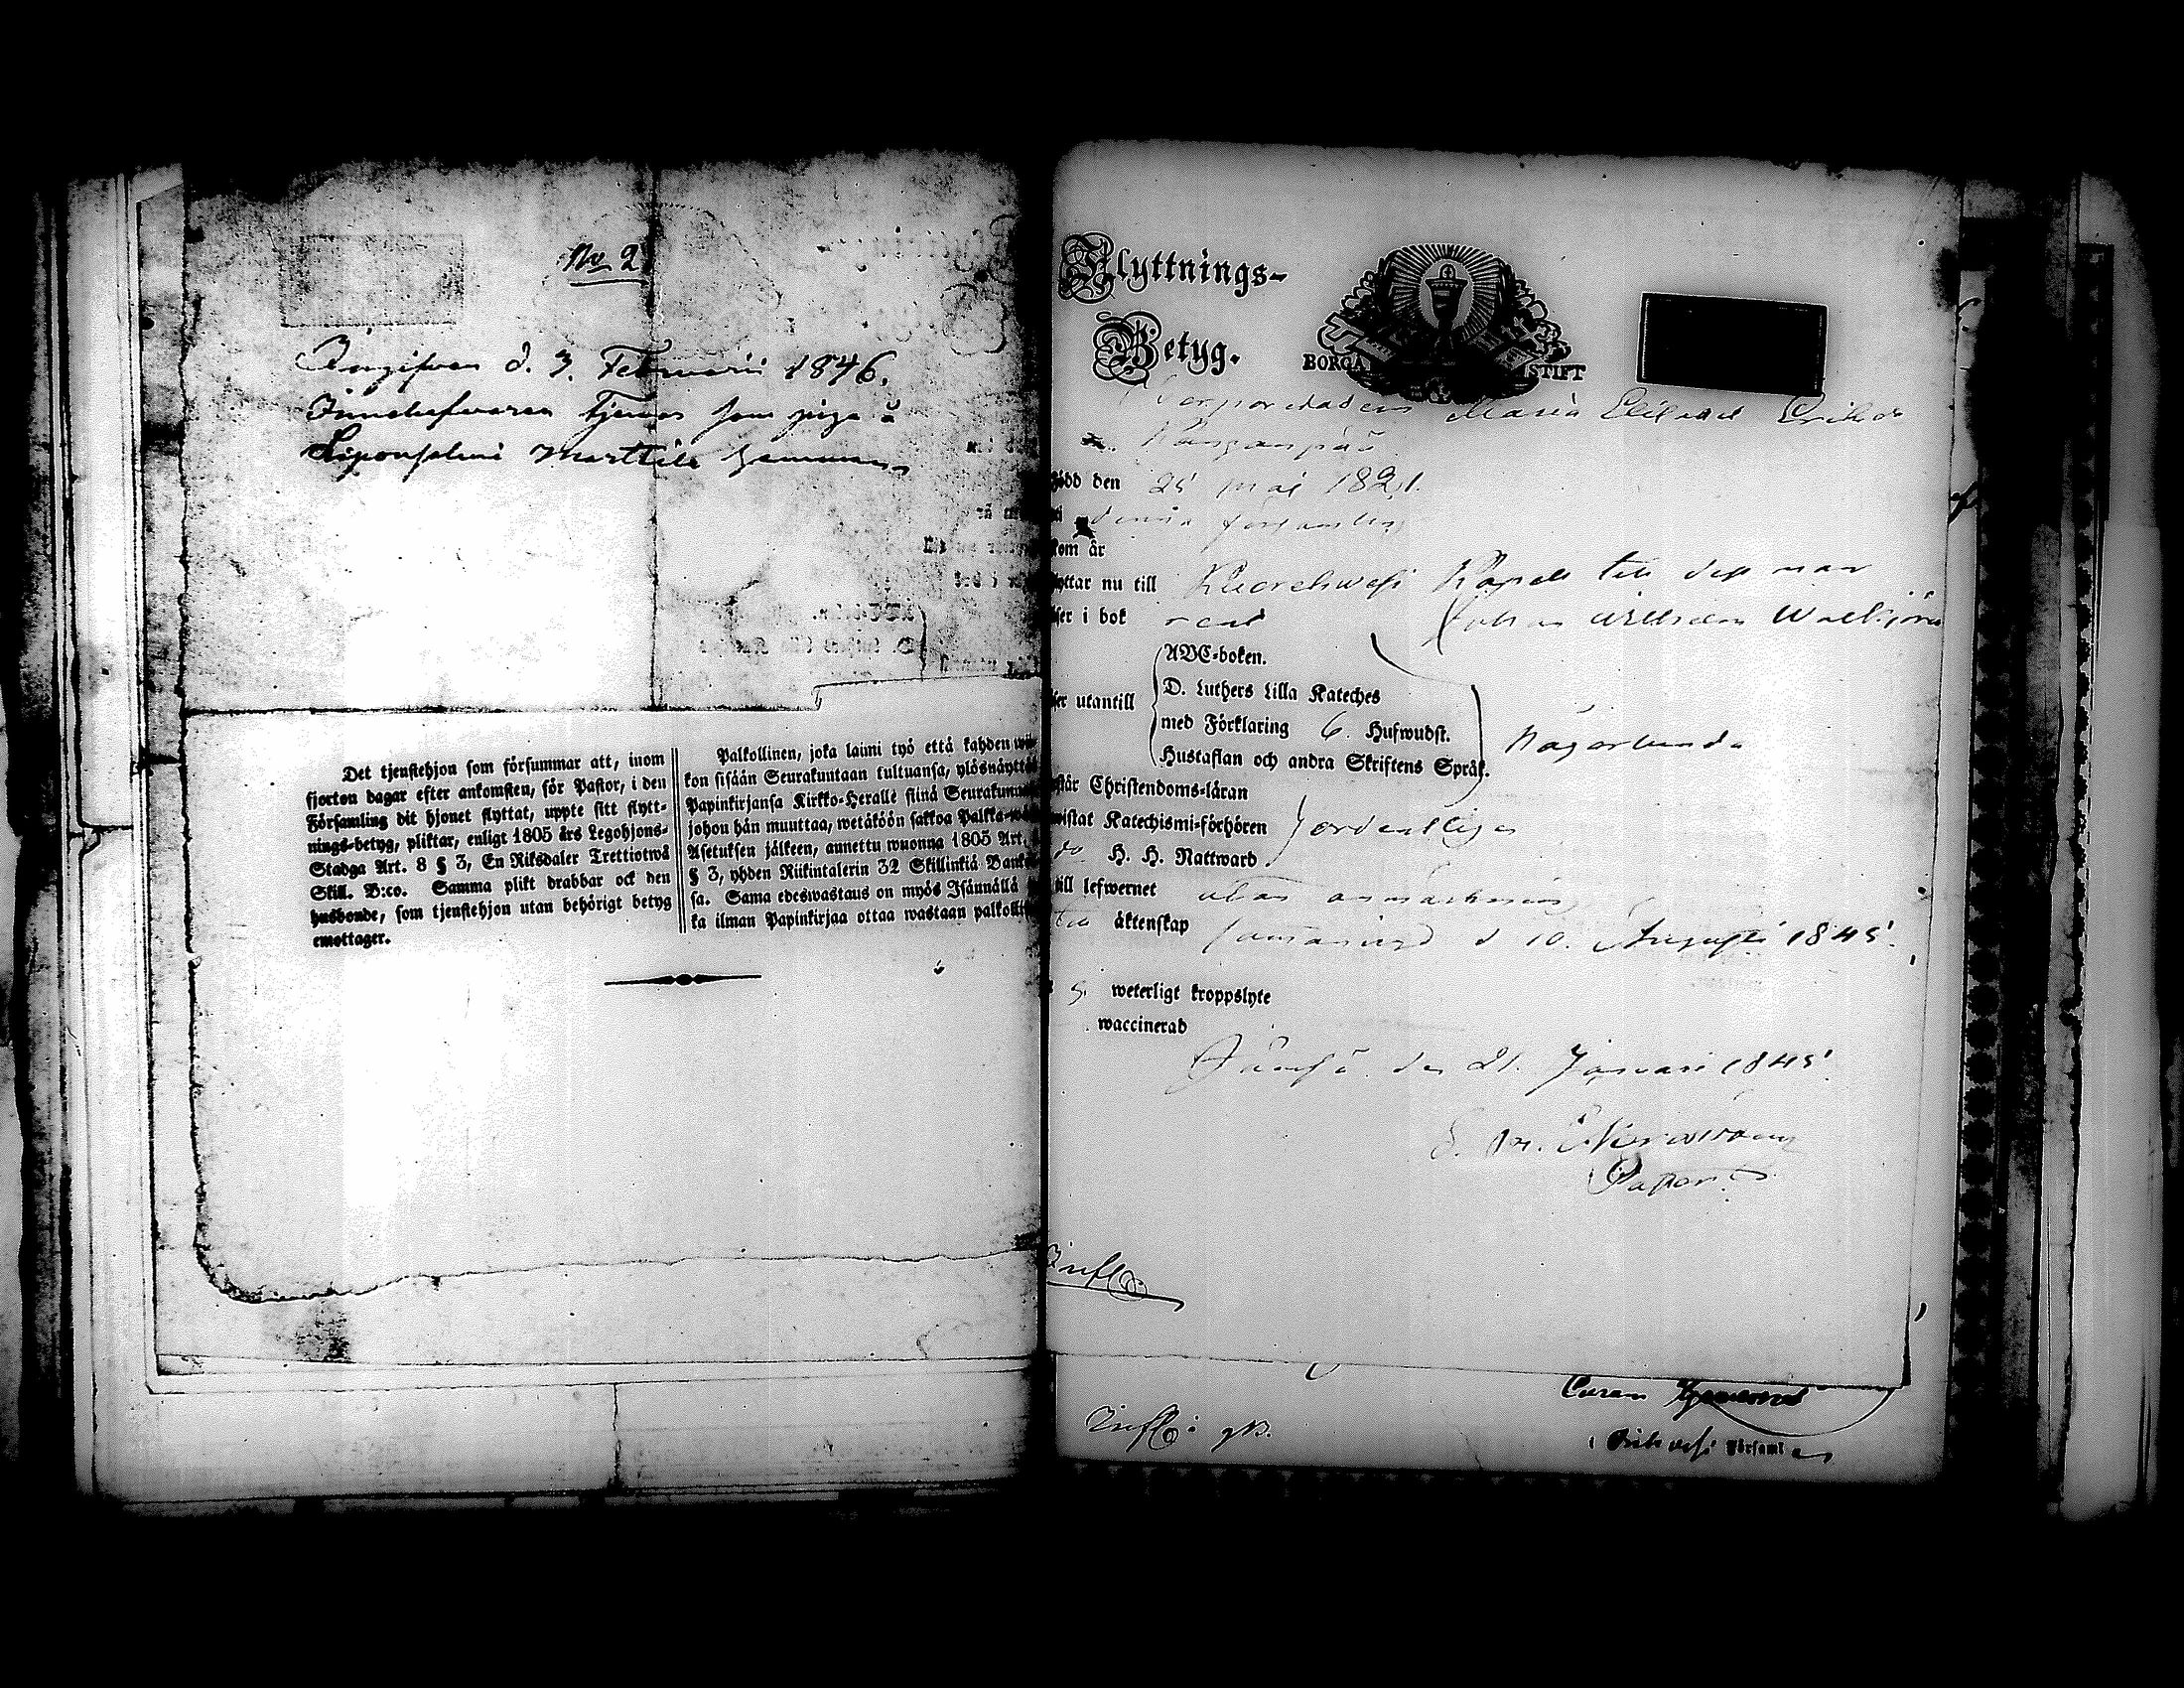 No 2
Ingifven d. 3. Februarii 1846.
Innehafvaren tjenar som piga å
Siponsalmi Marttila hemman
Det tjenstehjon som försummar att, inom
fjorton dagar efter ankomsten, för Pastor, i den
Församling dit hjonet flyttat, uppte sitt flytt-
nings-betyg, pliktar, enligt 1805 års Legohjons-
Stadga Art. 8 § 3, En Riksdaler Trettiotwå
Skill. B:co. Samma plikt drabbar ock den
husbonde, som tjenstehjon utan behörigt betyg
emottager.
Palkollinen, joka laimi työ että kahden wii-
kon sisään Seurakuntaan tultuansa, ylösnäyttä
Papinkirjansa Kirkko-Heralle siinä Seurakunna
johon hän muuttaa, wetäköön sakkoa Palkka-wä
Asetuksen jälkeen, annettu wuonna 1805 Art.
§ 3, yhden Riikintalerin 32 Skillinkiä Banko
sa. Sama edeswastaus on myös Isännällä
ka ilman Papinkirjaa ottaa wastaan palkolli
Flyttnings-
Betyg.
BORGÅ STIFT
Maria Eriksdr
Kangaspää
född den 25 Maj 1821.
i denna församling
som är
lyttar nu till Kuorehwesi Kapell till dess man
ser i bok rent Johan Wilhelm
ABC-boken.
D. Luthers Lilla Kateches
ser utantill
med Förklaring 6. Hufwudst.
Hustaflan och andra Skriftens Språk.
någorlunda
står Christendoms-läran
wistat Katechismi-förhören ordentligen
do H. H. Nattward
till lefwernet utan anmärkning
till äktenskap d 10. Augusti 1845.
weterligt kroppslyte
waccinerad
Jämsä den 21. Januari 1845.
Pastor
Infl.
Infl. i
i Orihvesi Församl en